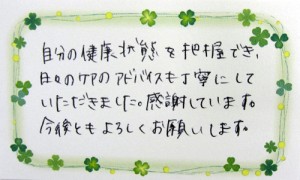 自分の健康状態を把握でき、
日々のケアのアドバイスも丁寧にして
いただきました。感謝しています。
今後ともよろしくお願いします。